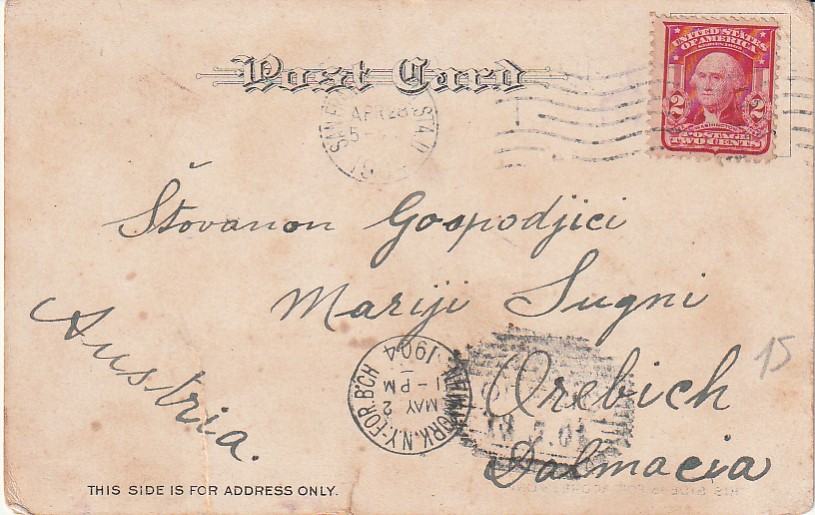 Post Card
UNITED STATES
OF AMERICA
2 2
POSTAGE
TWO CENTS
APR 28
5-
Štovanon Gospodjici
Mariji Sugni
Orebich
Dalmacia
Austria.
15
N.Y. FOR B'CH
MAY
2
1-PM
1904
THIS SIDE IS FOR ADDRESS ONLY.